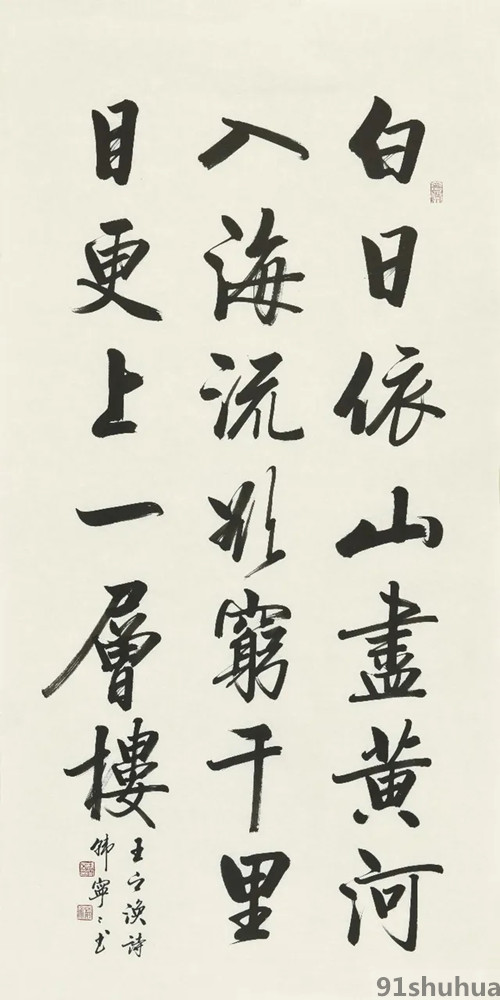 白日依山盡黄河
入海流欲窮千里
目更上一層樓
王之渙詩
韩寧〻书
91shuhua